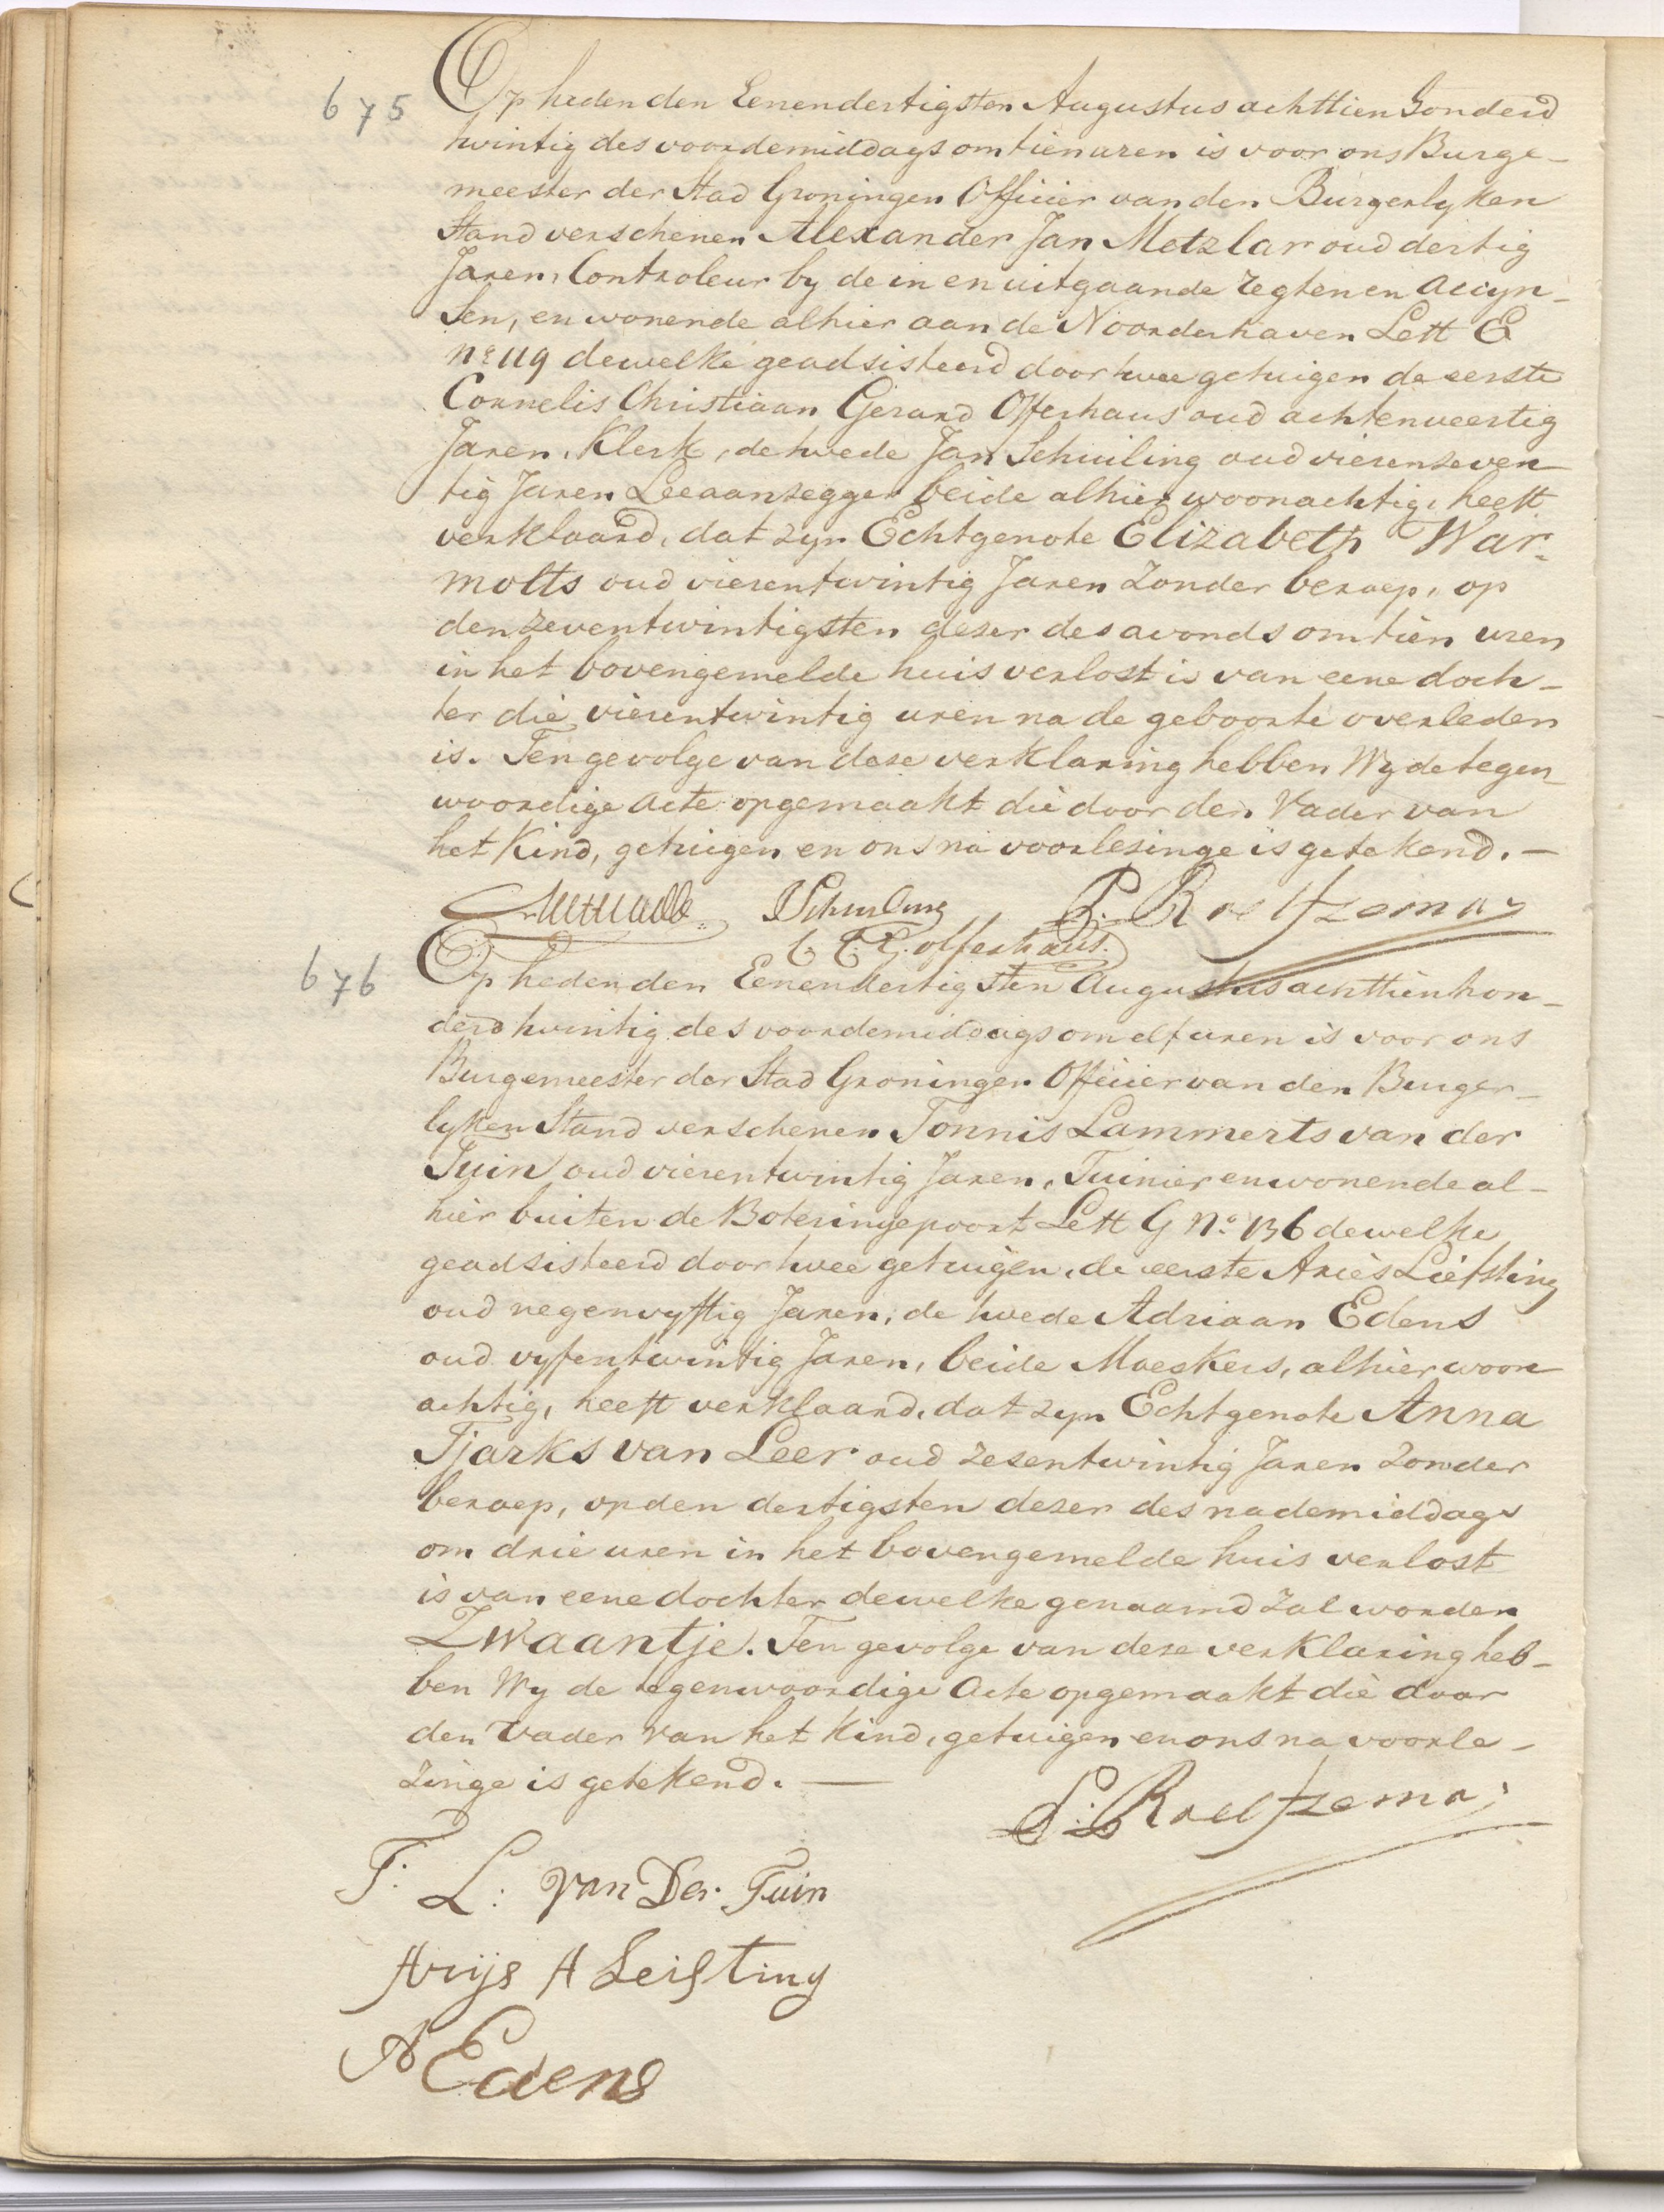 675
Op heden den Eenendertigsten Augustus achttien honderd
twintig des voordemiddags om tien uren is voor ons Burge-
meester der Stad Groningen Officier van den Burgerlyken
Stand verschenen Alexander Jan Metzlar oud dertig
Jaren, Controleur by de in en uitgaande regten en accyn-
sen, en wonende alhier aan de Noorderhaven Lett E
No 119 dewelke geadsisteerd door twee getuigen de eerste
Cornelis Christiaan Gerard Offerhaus oud achtenveertig
Jaren, Klerk, de twede Jan Schuiling oud vierenzeven
tig Jaren Leeaanzegger beide alhier woonachtig, heeft
verklaard, dat zyn Echtgenote Elizabeth War-
molts oud vierentwintig Jaren zonder beroep, op
den zeventwintigsten dezer des avonds om tien uren
in het bovengemelde huis verlost is van eene doch-
ter die vierentwintig uren na de geboorte overleden
is. Ten gevolge van deze verklaring hebben Wy de tegen-
woordige acte opgemaakt die door den Vader van
het Kind, getuigen en ons na voorlezinge is getekend. —
JSchuiling P. Roelfzema
C C G. offerhaus.
676
Op heden den Eenendertigsten Augustus achttienhon-
derd twintig des voordemiddags om elf uren is voor ons
Burgemeester der Stad Groningen Officier van den Burger-
lyken Stand verschenen Tonnis Lammerts van der
Tuin oud vierentwintig Jaren, Tuinier en wonende al-
hier buiten de Boteringepoort Lett G No 136 dewelke
geadsisteerd door twee getuigen, de eerste Aries Liefsting
oud negenvyftig Jaren, de twede Adriaan Edens
oud vyfentwintig Jaren, beide Moeskers, alhier woon
achtig, heeft verklaard, dat zyn Echtgenote Anna
Tjarks van Leer oud zesentwintig Jaren zonder
beroep, op den dertigsten dezer des nademiddags
om drie uren in het bovengemelde huis verlost
is van eene dochter dewelke genaamd zal worden
Zwaantje. Ten gevolge van deze verklaring heb-
ben Wy de tegenwoordige Acte opgemaakt die door
den Vader van het Kind, getuigen en ons na voorle-
zinge is getekend. —
P: Roelfzema;
T: L: van Der Tuin
Arijs A Leifting
A Edens